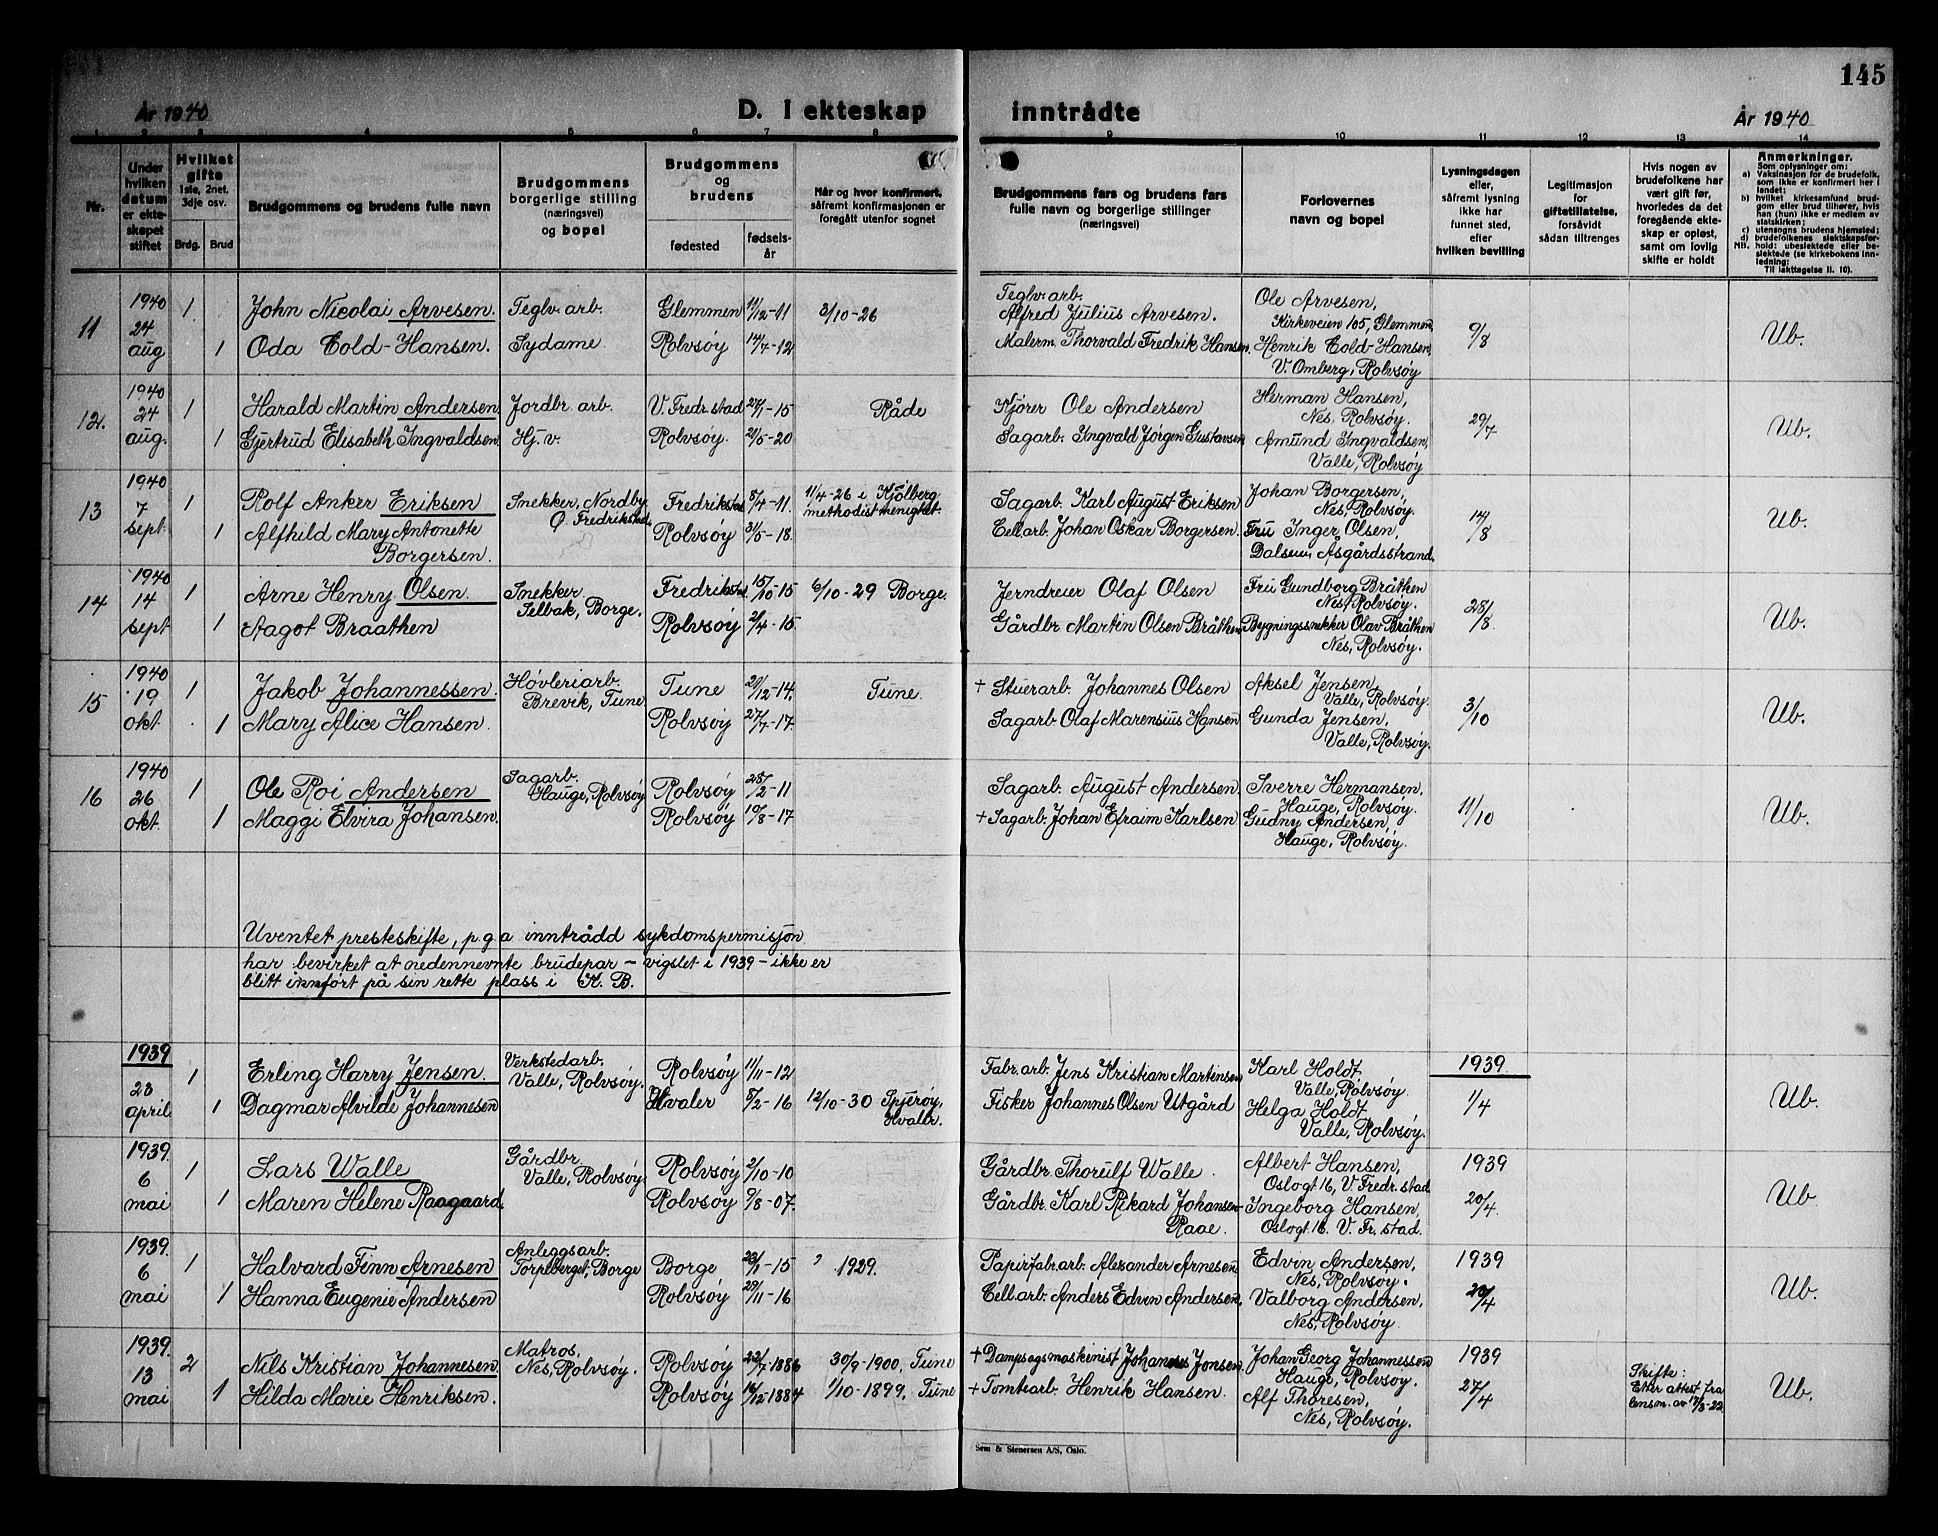 145
År 1940
D. I ekteskap inntrådte
År 1940
1 2 3 4 5 6 7 8 9 10 11 12 13 14
Nr.
Under hvilken datum er ekteskapet stiftet
Hvilket gifte 1ste, 2net, 3dje osv.
Brdg. Brud
Brudgommens og brudens fulle navn
Brudgommens borgerlige stilling (næringsvei) og bopel
Brudgommens og brudens
fødested
fødselsår
Når og hvor konfirmert, såfremt konfirmasjonen er foregått utenfor sognet
Brudgommens fars og brudens fars fulle navn og borgerlige stillinger (næringsvei)
Forlovernes navn og bopel
Lysningsdagen eller, såfremt lysning ikke har funnet sted, efter hvilken bevilling
Legitimasjon for giftetillatelse, forsåvidt sådan tiltrenges
Hvis nogen av brudefolkene har vært gift før, hvorledes da det foregående ekteskap er opløst, samt om lovlig skifte er holdt
Anmerkninger.
Som oplysninger om:
a) Vaksinasjon for de brudefolk, som ikke er konfirmert her i landet;
b) hvilket kirkesamfund brudgom eller brud tilhører, hvis han (hun) ikke er medlem av statskirken;
c) utensogns brudens hjemsted;
d) brudefolkenes slektskapsforhold: ubeslektede eller beslektede (se kirkebokens innledning;
NB.
Til iakttagelse II. 10).
11 1940 24 aug 1 John Nicolai Arvesen. Teglv. arb. Glemmen 11/12-11 3/10-26 Teglv. arb. Alfred Julius Arvesen. Ole Arvesen, Kirkeveien 105, Glemmen 9/8 Ub.
1 Oda Cold-Hansen. Sydame. Rolvsøy 14/7-12 Malerm. Thorvald Fredrik Hansen. Henrik Cold-Hansen, V. Omberg, Rolvsøy
12. 1940 24 aug. 1 Harald Martin Andersen Jordbr. arb. V. Fredr. stad 27/1-15 Råde Kjører Ole Andersen Herman Hansen, Nes, Rolvsøy. 29/7 Ub.
1 Gjertrud Elisabeth Ingvaldsen Hj. v. Rolvsøy. 21/5-20 Sagarb. Ingvald Jørgen Gustavsen Amund Ingvaldsen, Valle, Rolvsøy
13 1940 7 sept. 1 Rolf Anker Eriksen Snekker, Nordby Ø. Fredrikstad. Fredrikstad 8/4-11. 11/4-26 i Kjølberg methodistmenighet. Sagarb. Karl August Eriksen Johan Borgersen, Nes, Rolvsøy. 14/8 Ub.
1 Alfhild Mary Antonette Borgersen. Rolvsøy 31/5-18. Cell.arb. Johan Oskar Borgersen. Fru Inger Olsen, Åsgårdsstrand.
14 1940 14 sept 1 Arne Henry Olsen. Snekker Selbak, Borge. Fredrikstad 15/10-15 6/10-29 Borge. Jerndreier Olaf Olsen Fru Gundborg Bråthen Nes, Rolvsøy. 28/8 Ub.
1 Aagot Braathen Rolvsøy 2/4-15. Gårdbr Martin Olsen Bråthen Bygningssnekker Olav Bråthen Nes, Rolvsøy.
15 1940 19 okt 1 Jakob Johannessen. Høvleriarb. Brevik, Tune Tune 20/12-14. Tune. + Stuerarb. Johannes Olsen Aksel Jensen, Valle, Rolvsøy. 3/10 Ub.
1 Mary Alice Hansen. Rolvsøy 27/7-17. Sagarb. Olaf Marensius Hansen Gunda Jensen, Valle, Rolvsøy.
16 1940 26 okt. 1 Ole Roi Andersen Sagarb. Hauge, Rolvsøy Rolvsøy 28/2-11 Sagarb. August Andersen. Sverre Hermansen. Hauge, Rolvsøy. 11/10 Ub.
1 Maggi Elvira Johansen. Rolvsøy 19/8-17 + Sagarb. Johan Efraim Karlsen Gudny Andersen, Hauge, Rolvsøy.
Uventet presteskifte, p.g.a inntrådd sykdomspermisjon
har bevirket at nedennevnte brudepar – vigslet i 1939 – ikke er
blitt innført på sin rette plass i K. B.
1939 23 april. 1 Erling Harry Jensen. Verkstedarb. Valle, Rolvsøy. Rolvsøy 1/11-12 Fabr. arb. Jens Kristian Martinsen Karl Holdt Valle, Rolvsøy 1939 1/4 Ub.
1 Dagmar Alvilde Johannesen Hvaler 5/2-16 12/10-30 Spjerøy, Hvaler. Fisker Johannes Olsen Utgård Helga Holdt Valle, Rolvsøy.
1939. 6 mai 1 Lars Walle Gårdbr. Valle, Rolvsøy. Rolvsøy 2/10-10 Gårdbr. Thorulf Walle. Albert Hansen, Oslogt 16, V. Fredr. stad 1939 20/4 Ub
1 Maren Helene Raagaard. Rolvsøy 9/8-07. Gårdbr. Karl Rikard Johansen-Raae. Ingeborg Hansen, Oslogt 16. V. Fr. stad.
1939. 6 mai 1 Halvard Finn Arnesen Anleggsarb. Torpeberget, Borge Borge 23/1-15 ? 1929. Papirfabr. arb. Alexander Arnesen Edvin Andersen, Nes, Rolvsøy. 1939 20/4 Ub.
1 Hanna Eugenie Andersen Rolvsøy 29/11-16 Cell.arb. Anders Edvin Andersen. Valborg Andersen, Nes, Rolvsøy.
1939. 13 mai 2 Nils Kristian Johannesen Matros. Nes, Rolvsøy. Rolvsøy 23/7-1886 30/9-1900. Tune + Dampsagsmaskinist Johannes Jonsen. Johan Georg Johannessen Hauge, Rolvsøy. 1939 27/4 Skifte: Etter attest fra lensm. av 17/3-22 Ub.
1 Hilda Marie Henriksen. Rolvsøy 16/12-1884 1/10-1899. Tune + Tomtearb. Henrik Hansen. Alf Thoresen, Nes, Rolvsøy.
Sem & Stenersen A/S, Oslo.